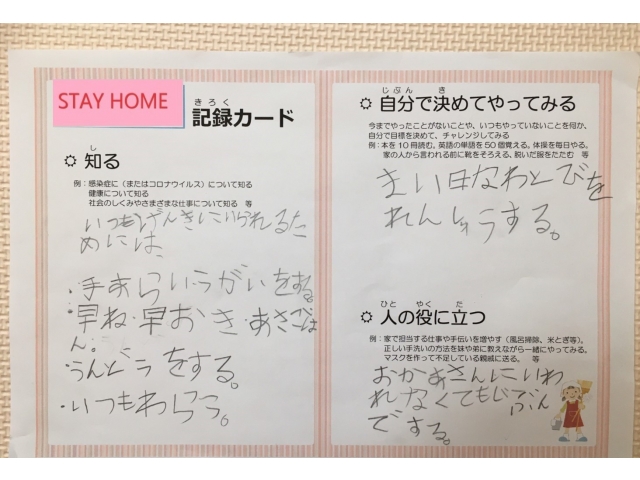 STAY HOME
きろく
記録カード
し
知る
例：感染症に（またはコロナウイルス）について知る
健康について知る
社会のしくみやさまざまな仕事について知る 等
いつもげんきにいられるた
めには、
・手あらい・うがいをする。
・早ね・早おき・あさごは
ん。
・うんどうをする。
・いつもわらう。
じぶん き
自分で決めてやってみる
今までやったことがないことや、いつもやっていないことを何か、
自分で目標を決めて、チャレンジしてみる
例：本を10冊読む。英語の単語を50個覚える。体操を毎日やる。
家の人から言われる前に靴をそろえる、脱いだ服をたたむ 等
まい日なわとびを
れんしゅうする。
ひと やく た
人の役に立つ
例：家で担当する仕事や手伝いを増やす（風呂掃除、米とぎ等）。
正しい手洗いの方法を妹や弟に教えながら一緒にやってみる。
マスクを作って不足している親戚に送る。 等
おかあさんにいわ
れなくてもじぶん
でする。